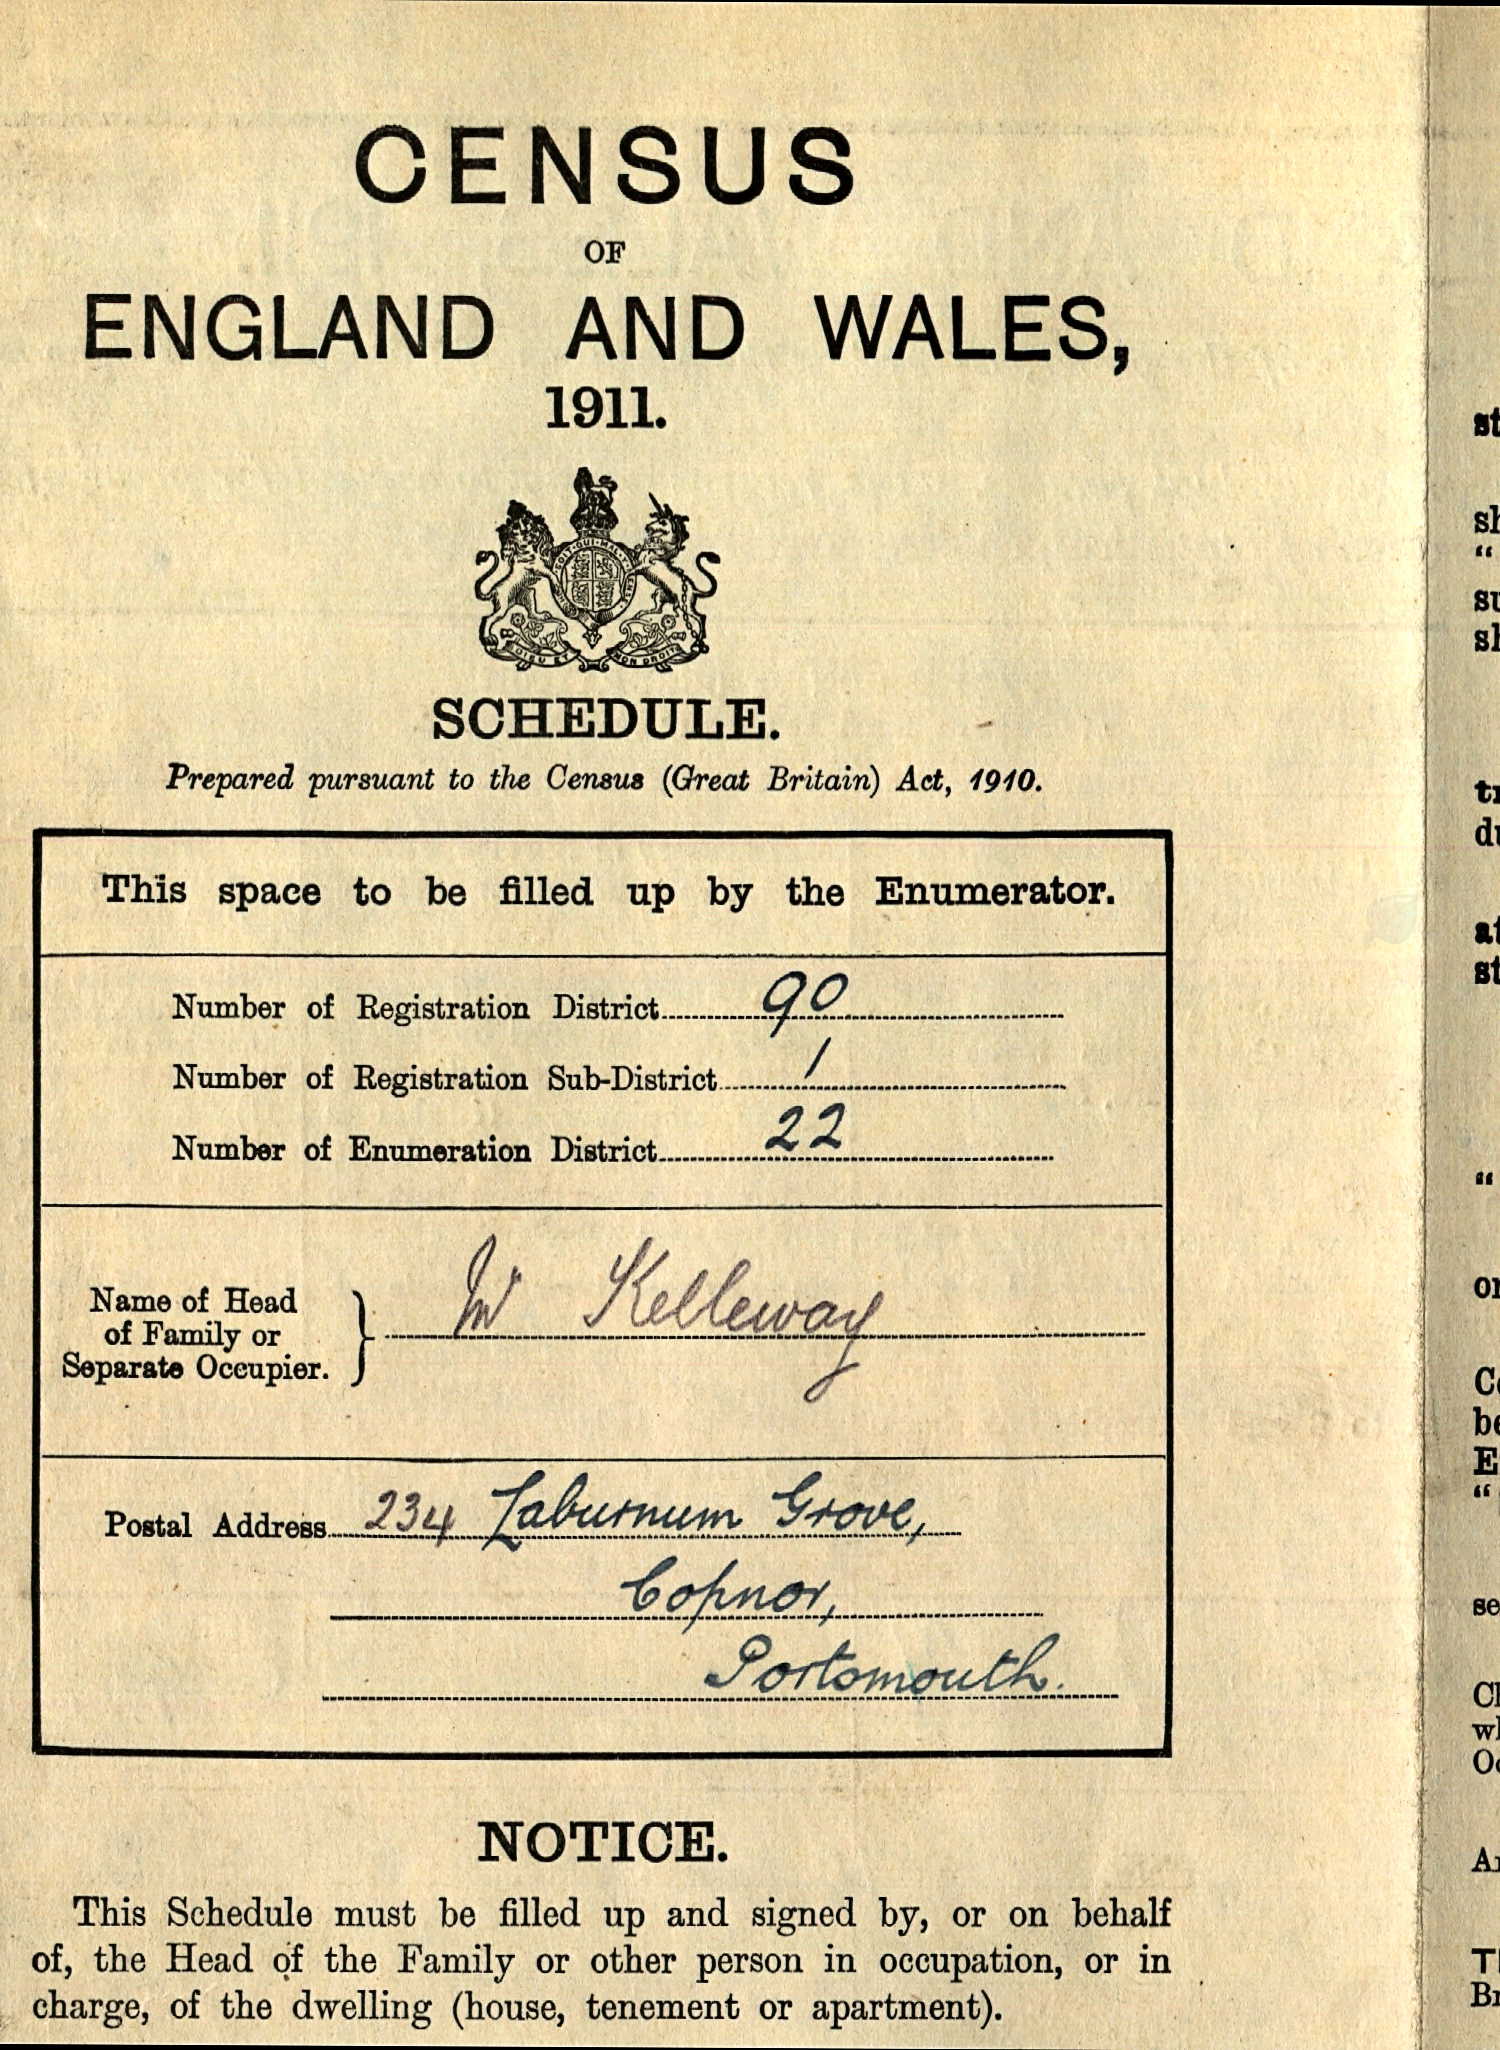 CENSUS
OF
ENGLAND AND WALES,
1911.
DIEU ET MON DROIT
SCHEDULE.
Prepared pursuant to the Census (Great Britain) Act, 1910.
This space to be filled up by the Enumerator.
Number of Registration District 90
Number of Registration Sub-District 1
Number of Enumeration District 22
Name of Head
of Family or
Separate Occupier. } W Kelleway
Postal Address 234 Laburnum Grove,
Copnor,
Portsmouth.
NOTICE.
This Schedule must be filled up and signed by, or on behalf
of, the Head of the Family or other person in occupation, or in
charge, of the dwelling (house, tenement or apartment).